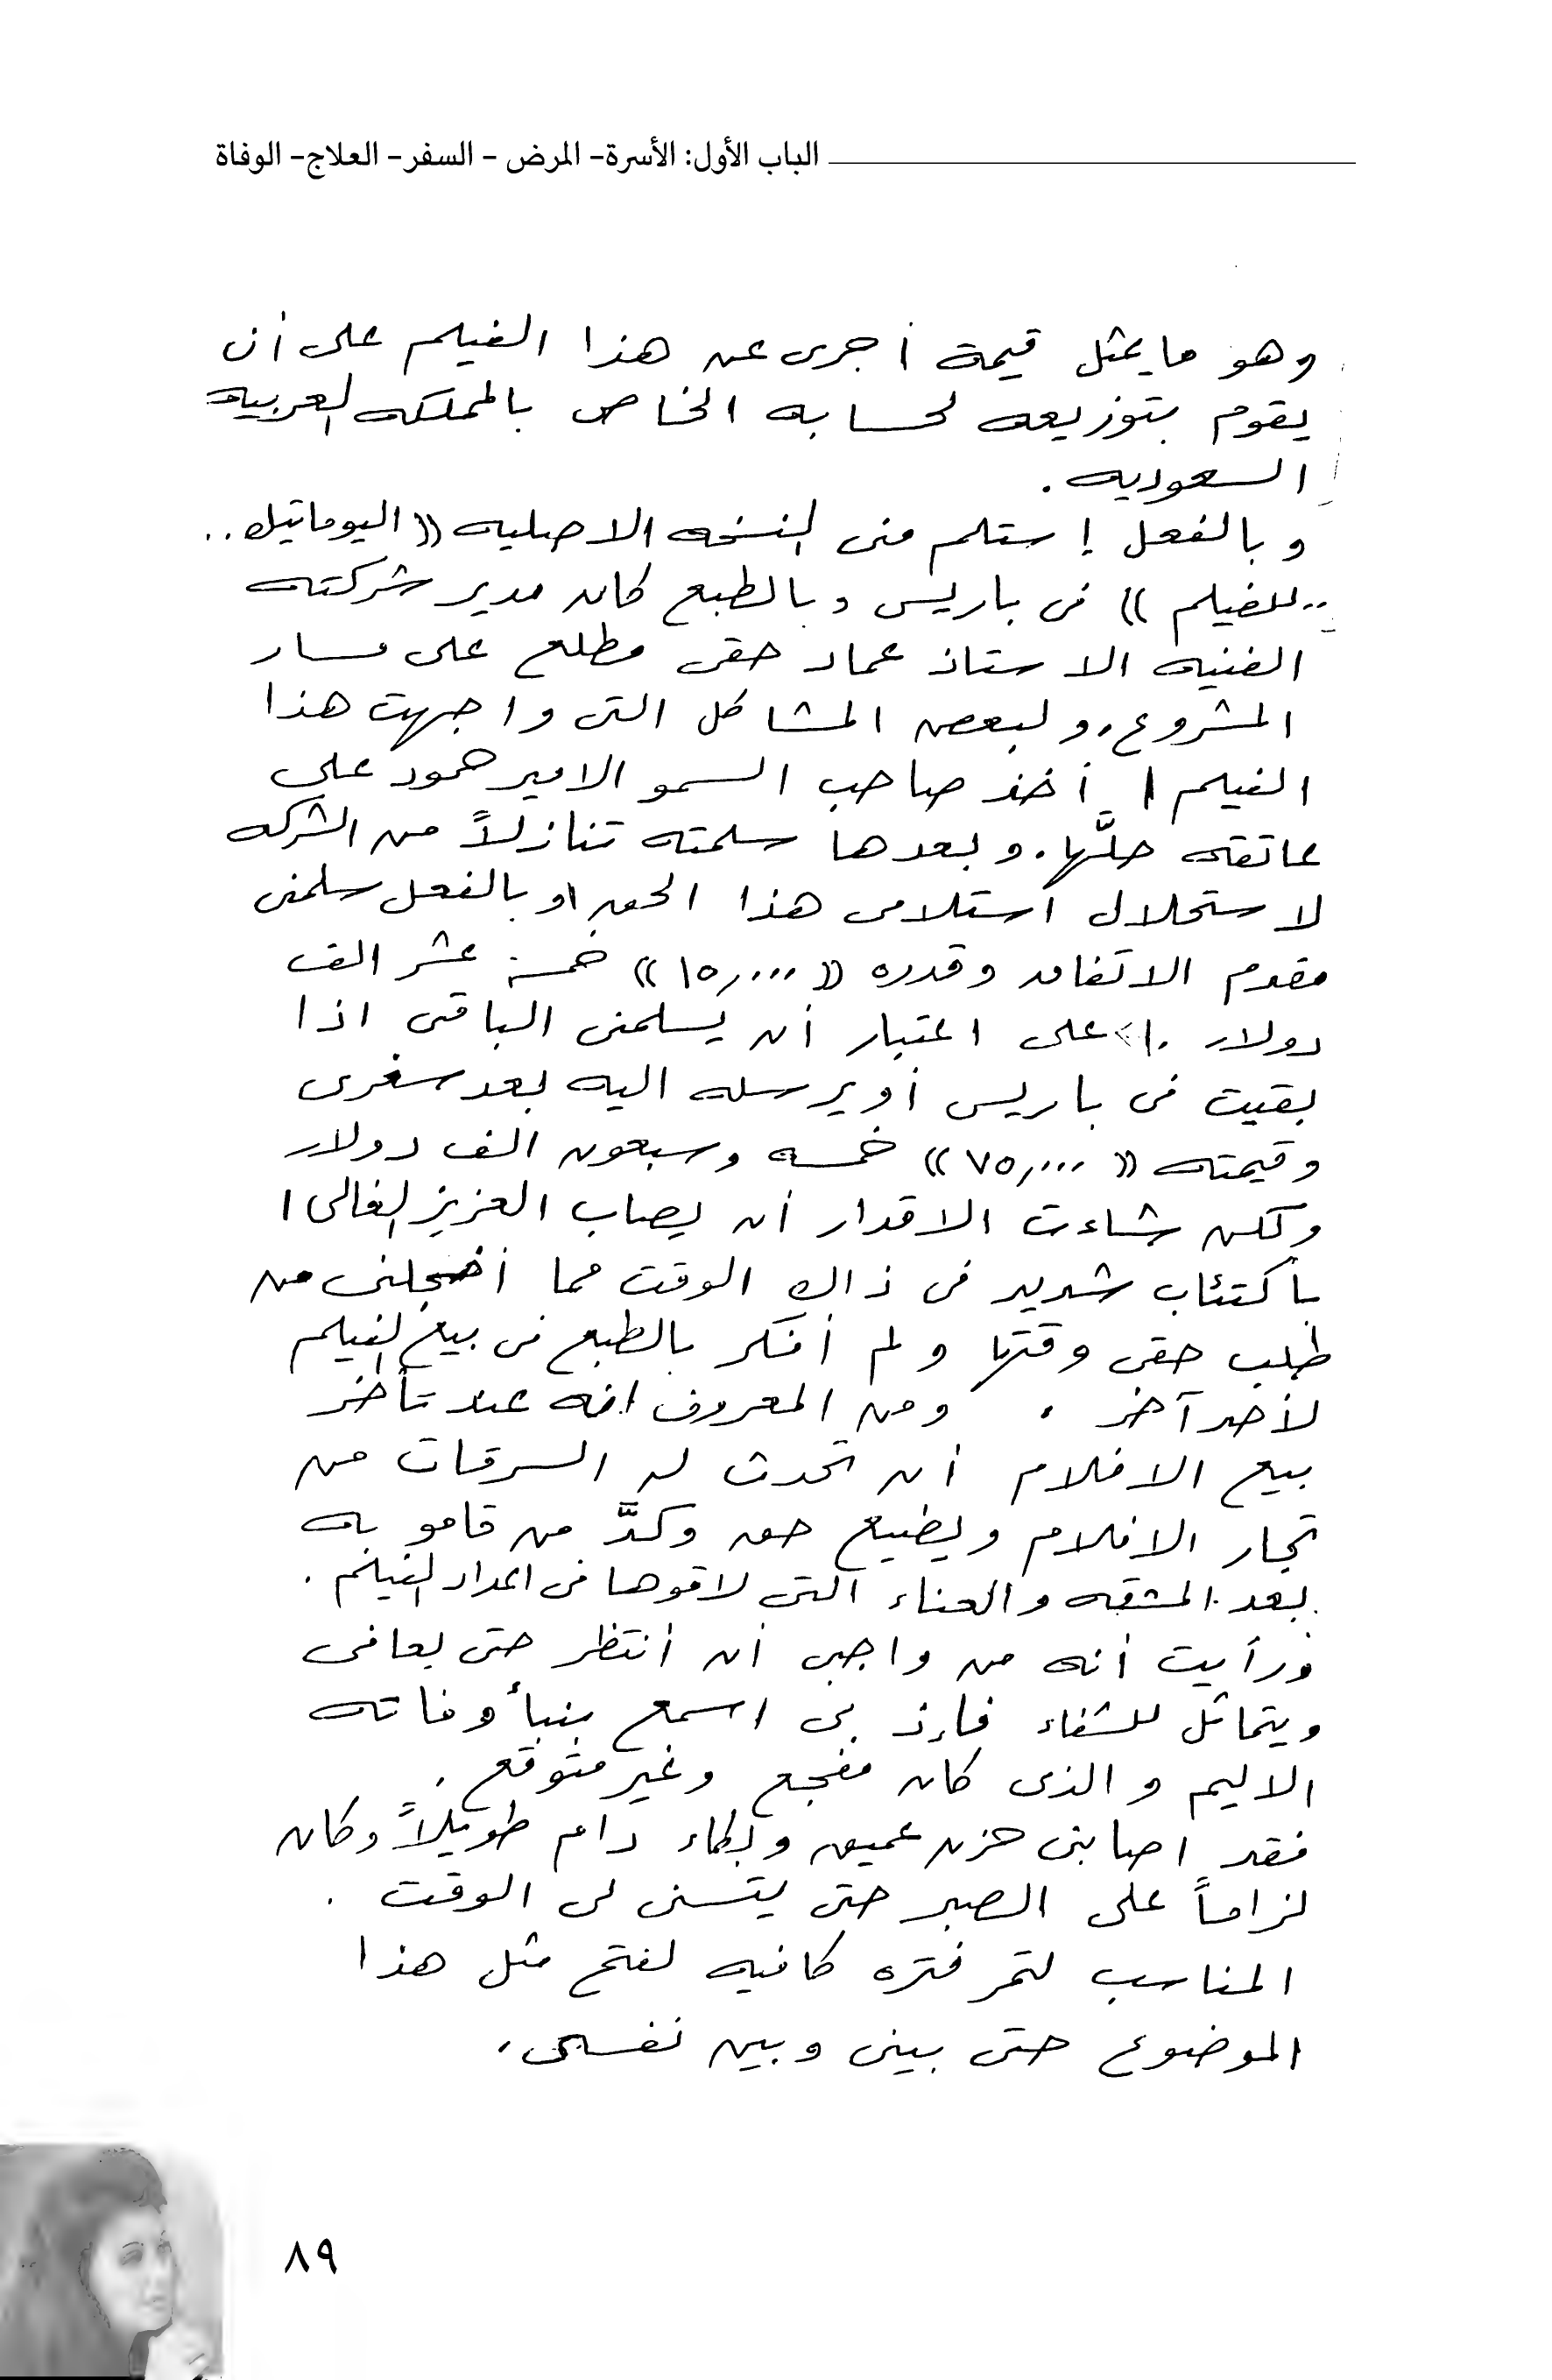 الباب الأول: الأسرة- المرض - السفر- العلاج- الوفاة
وهو ما يمثل قيمة أجرى عن هذا الفيلم على أن
يقوم بتوزيعه لحسابه الخاص بالمملكه العربيه
السعوديه .
وبالفعل إستلم منى النسخه الاصليه « اليوماتيك ..
.. للفيلم » فى باريس وبالطبع كان مدير شركته
الفنيه الاستاذ عماد حقى مطلع على مسار
المشروع، ولبعض المشاكل التى واجهت هذا
الفيلم ا أخذ صاحب السمو الامير حمود على
عاتقه حلَّها. وبعدها سلمته تنازلاً من الشركه
لاستحلال استلامى هذا الحق، وبالفعل سلمنى
مقدم الاتفاق وقدره « ١٥,٠٠٠ » خمسة عشر الف
دولار . على اعتبار أن يسلمنى الباقى اذا
بقيت فى باريس أو يرسله اليه بعد سفرى
وقيمته « ٧٥,٠٠٠ » خمسه وسبعون الف دولار
ولكن شاءت الاقدار أن يصاب العزيز الغالى ا
بأكتئاب شديد فى ذاك الوقت مما أخجلنى من
طلب حقى وقتها ولم أفكر بالطبع فى بيع الفيلم
لأحد آخر . ومن المعروف انه عند تأخر
بيع الافلام أن تحدث له السرقات من
تجار الافلام ويضيع حق وكدَّ من قامو به
بعد المشقه والعناء التى لاقوها فى اعداد الفيلم .
ورأيت أنه من واجبى أن أنتظر حتى يعافى
ويتماثل للشفاء فإذ بى اسمع بنبأ وفاته
الاليم والذى كان مفجع وغير متوقع .
فقد اصابنى حزن عميق وبكاء دام طويلاً وكان
لزاماً على الصبر حتى يتسنى لى الوقت .
المناسب لتمر فتره كافيه لفتح مثل هذا
الموضوع حتى بينى وبين نفسى .
٨٩